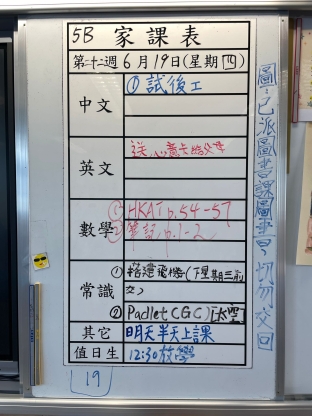 5B 家課表
第二十二週 6月19日(星期四)
中文
①試後工
英文
送心意卡給父母
數學
①HKAT p.54-57
②筆記 p.1-2
常識
①搭建飛機(下星期三前交)
②Padlet(GC)[太空]
其它
明天半天上課
值日生
12:30放學
19
圖：已派圖書課圖書,切勿交回